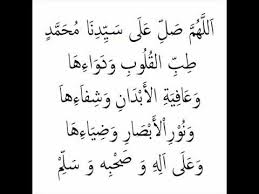 اَللَّهُمَّ صَلِّ عَلَى سَيِّدِنَا مُحَمَّدٍ
طِبِّ القُلُوبِ وَدَوَاءِهَا
وَعَافِيَةِ الأَبْدَانِ وَشِفَاءِهَا
وَنُوْرِ اْلأَبْصَارِ وَضِيَاءِهَا
وَعَلَى آلِهِ وَ صَحْبِه وَ سَلِّمْ